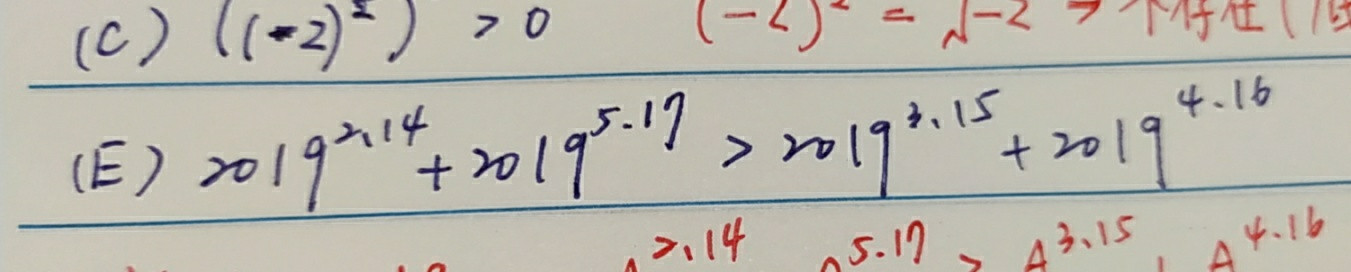 (C) ((-2)²) > 0 (-2)² = √-2 → 不存在(
(E) 2019^2.14 + 2019^5.17 > 2019^3.15 + 2019^4.16
2.14 5.17 > A^3.15 A^4.16